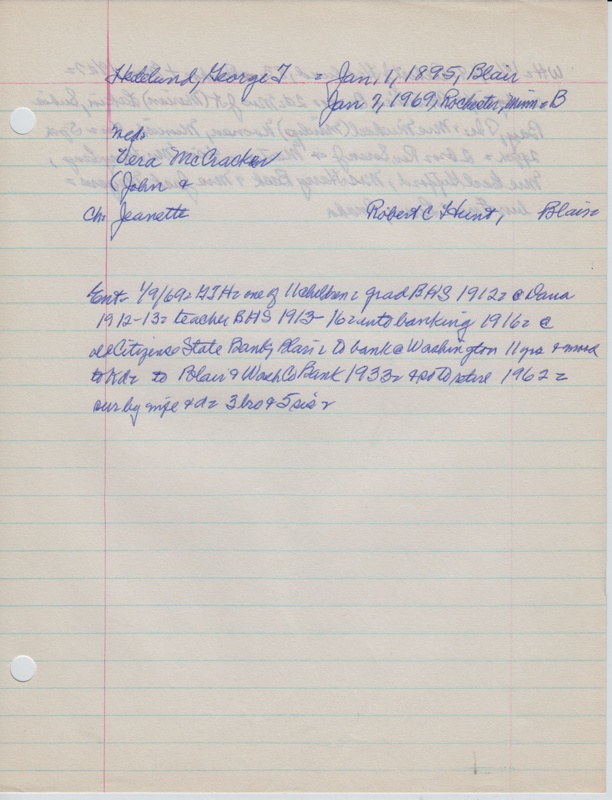 Hedelund, George T = Jan, 1, 1895, Blair
Jan 7, 1969, Rochester, Minn = B
Vera McCracken
(John +
Ch: Jeanette Robert C Hunt, Blair=
Ent= 1/9/69= GTH= one of 11 children= grad BHS 1912= @ Dana
1912-13= teacher BHS 1913-16= into banking 1916= @
Citizens State Bank, Blair= to bank @ Washington 11 yrs +
to Blair + Wash Co Bank 1933= 1962=
sur by wife + d= 3 bro + 5 sis=